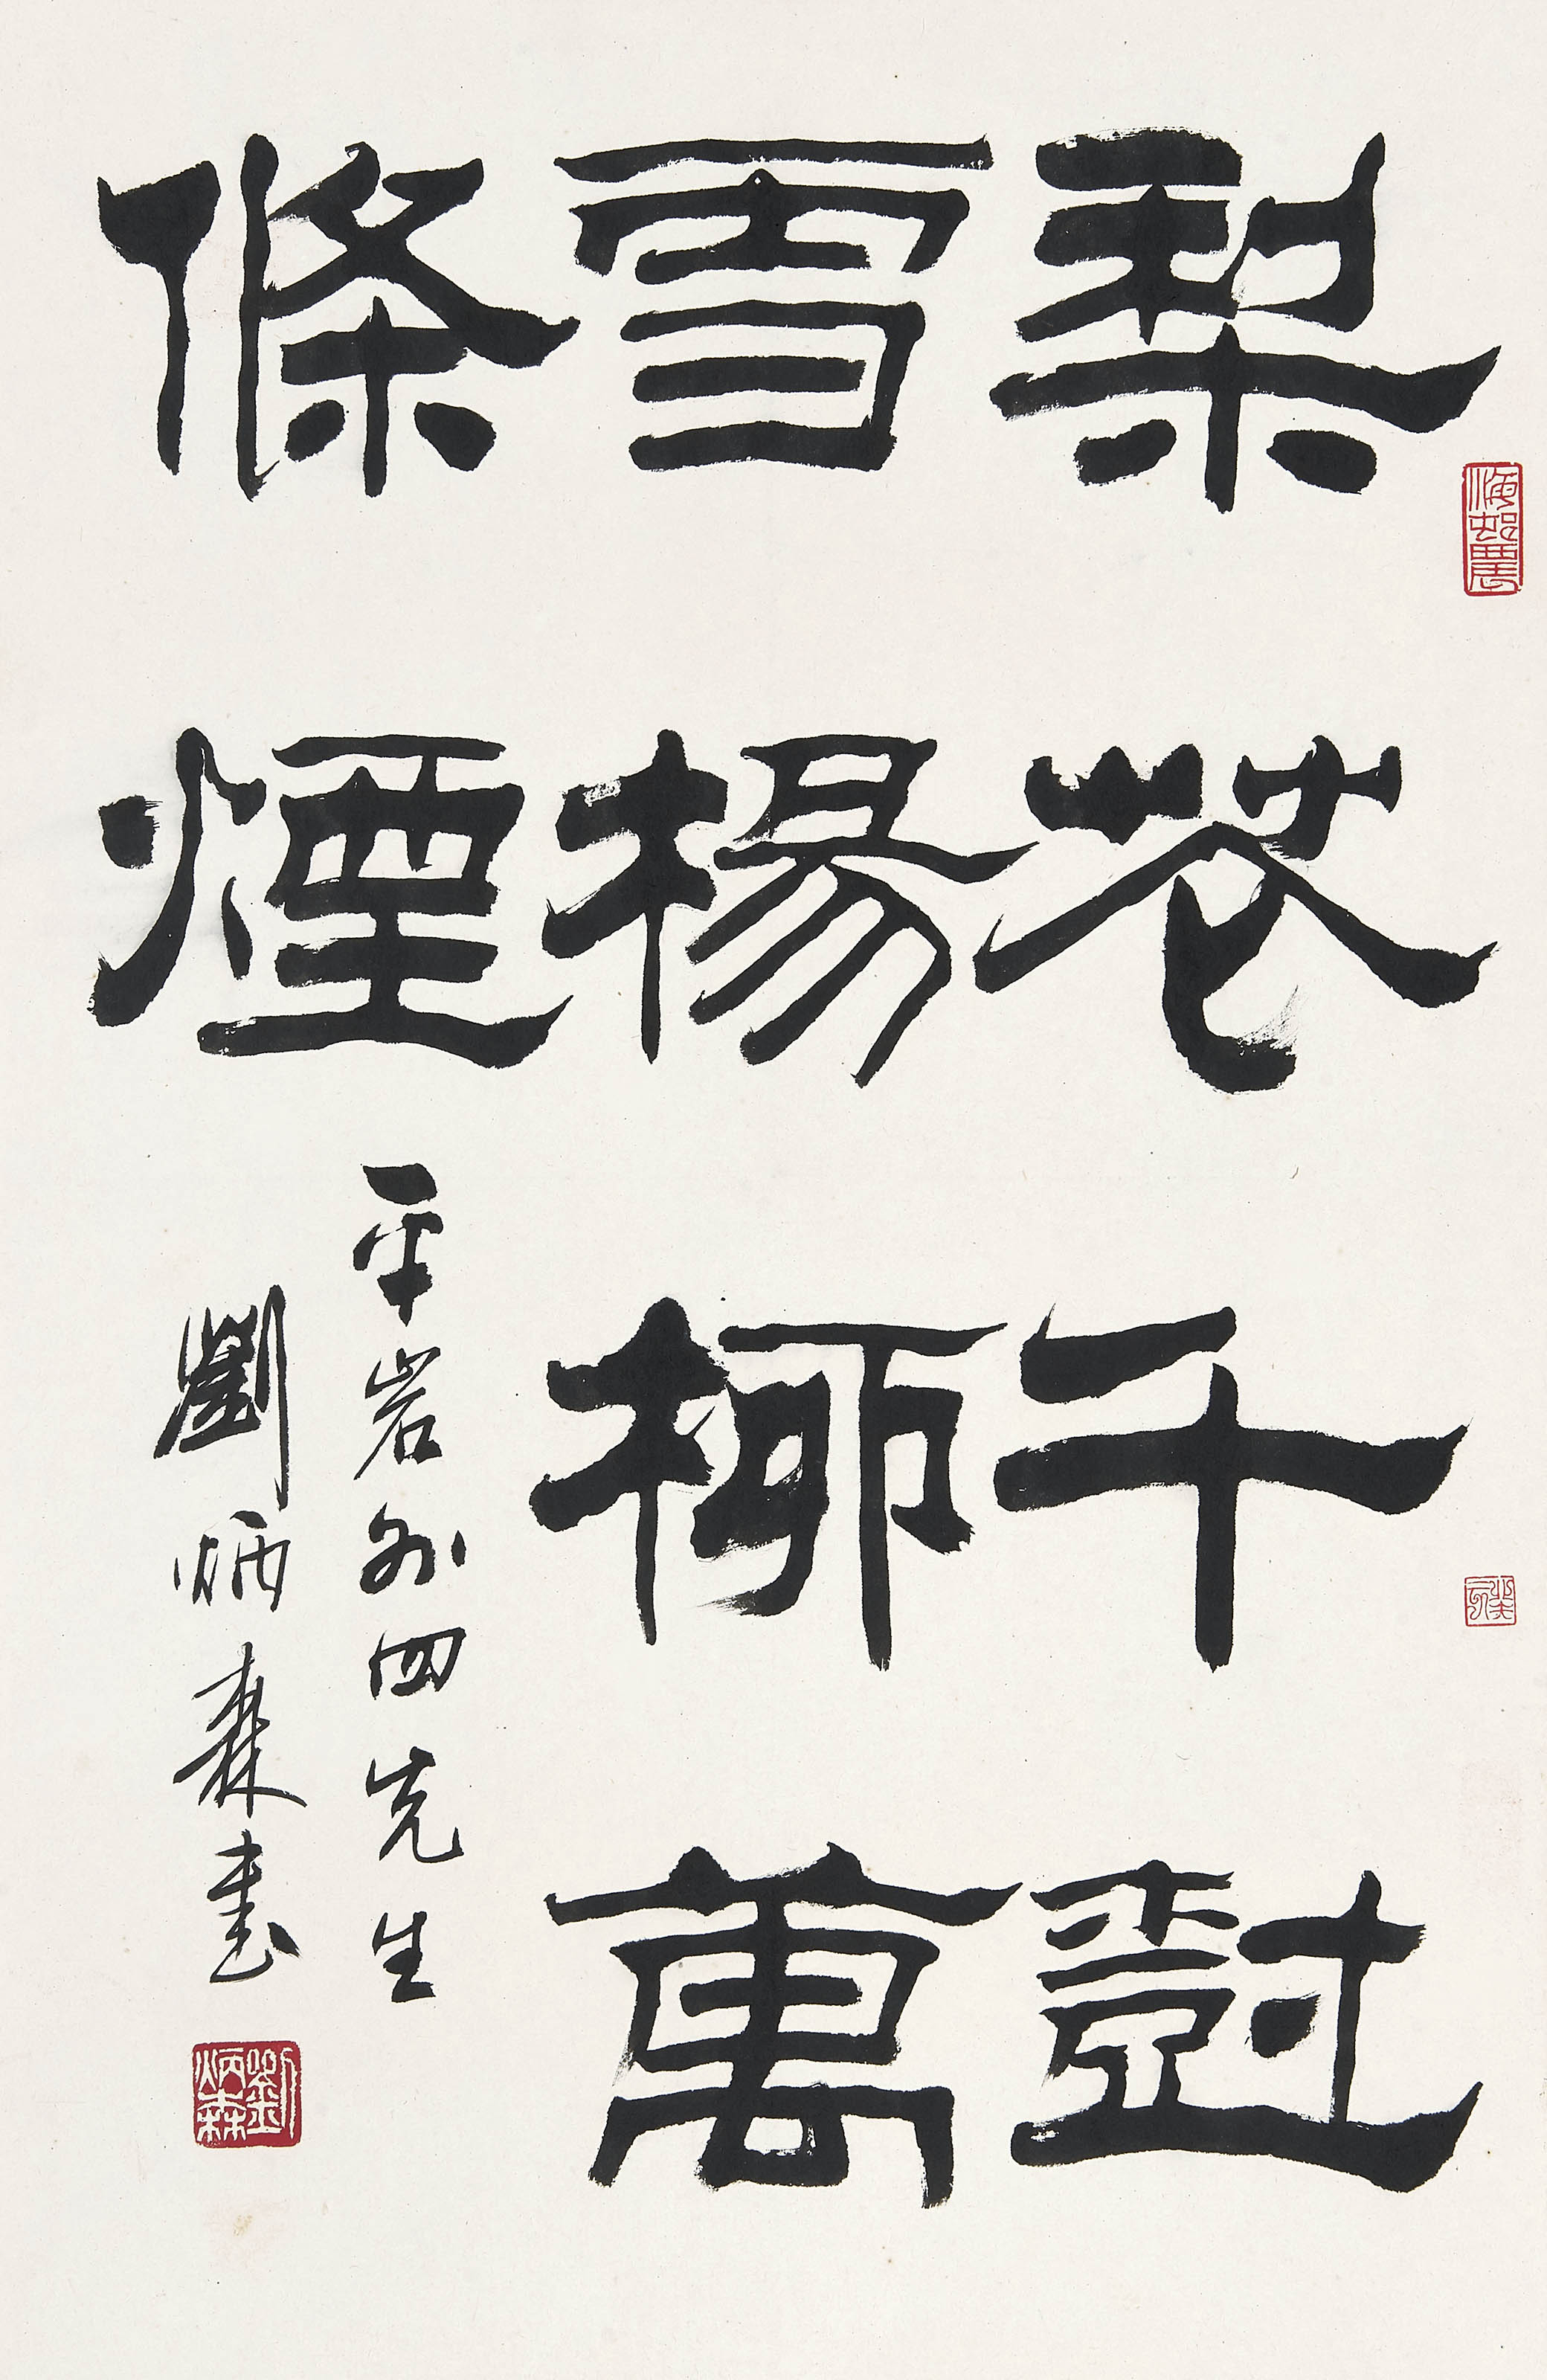 梨花千樹
雪楊柳萬
條煙
平岩外四先生
劉炳森書
劉炳森